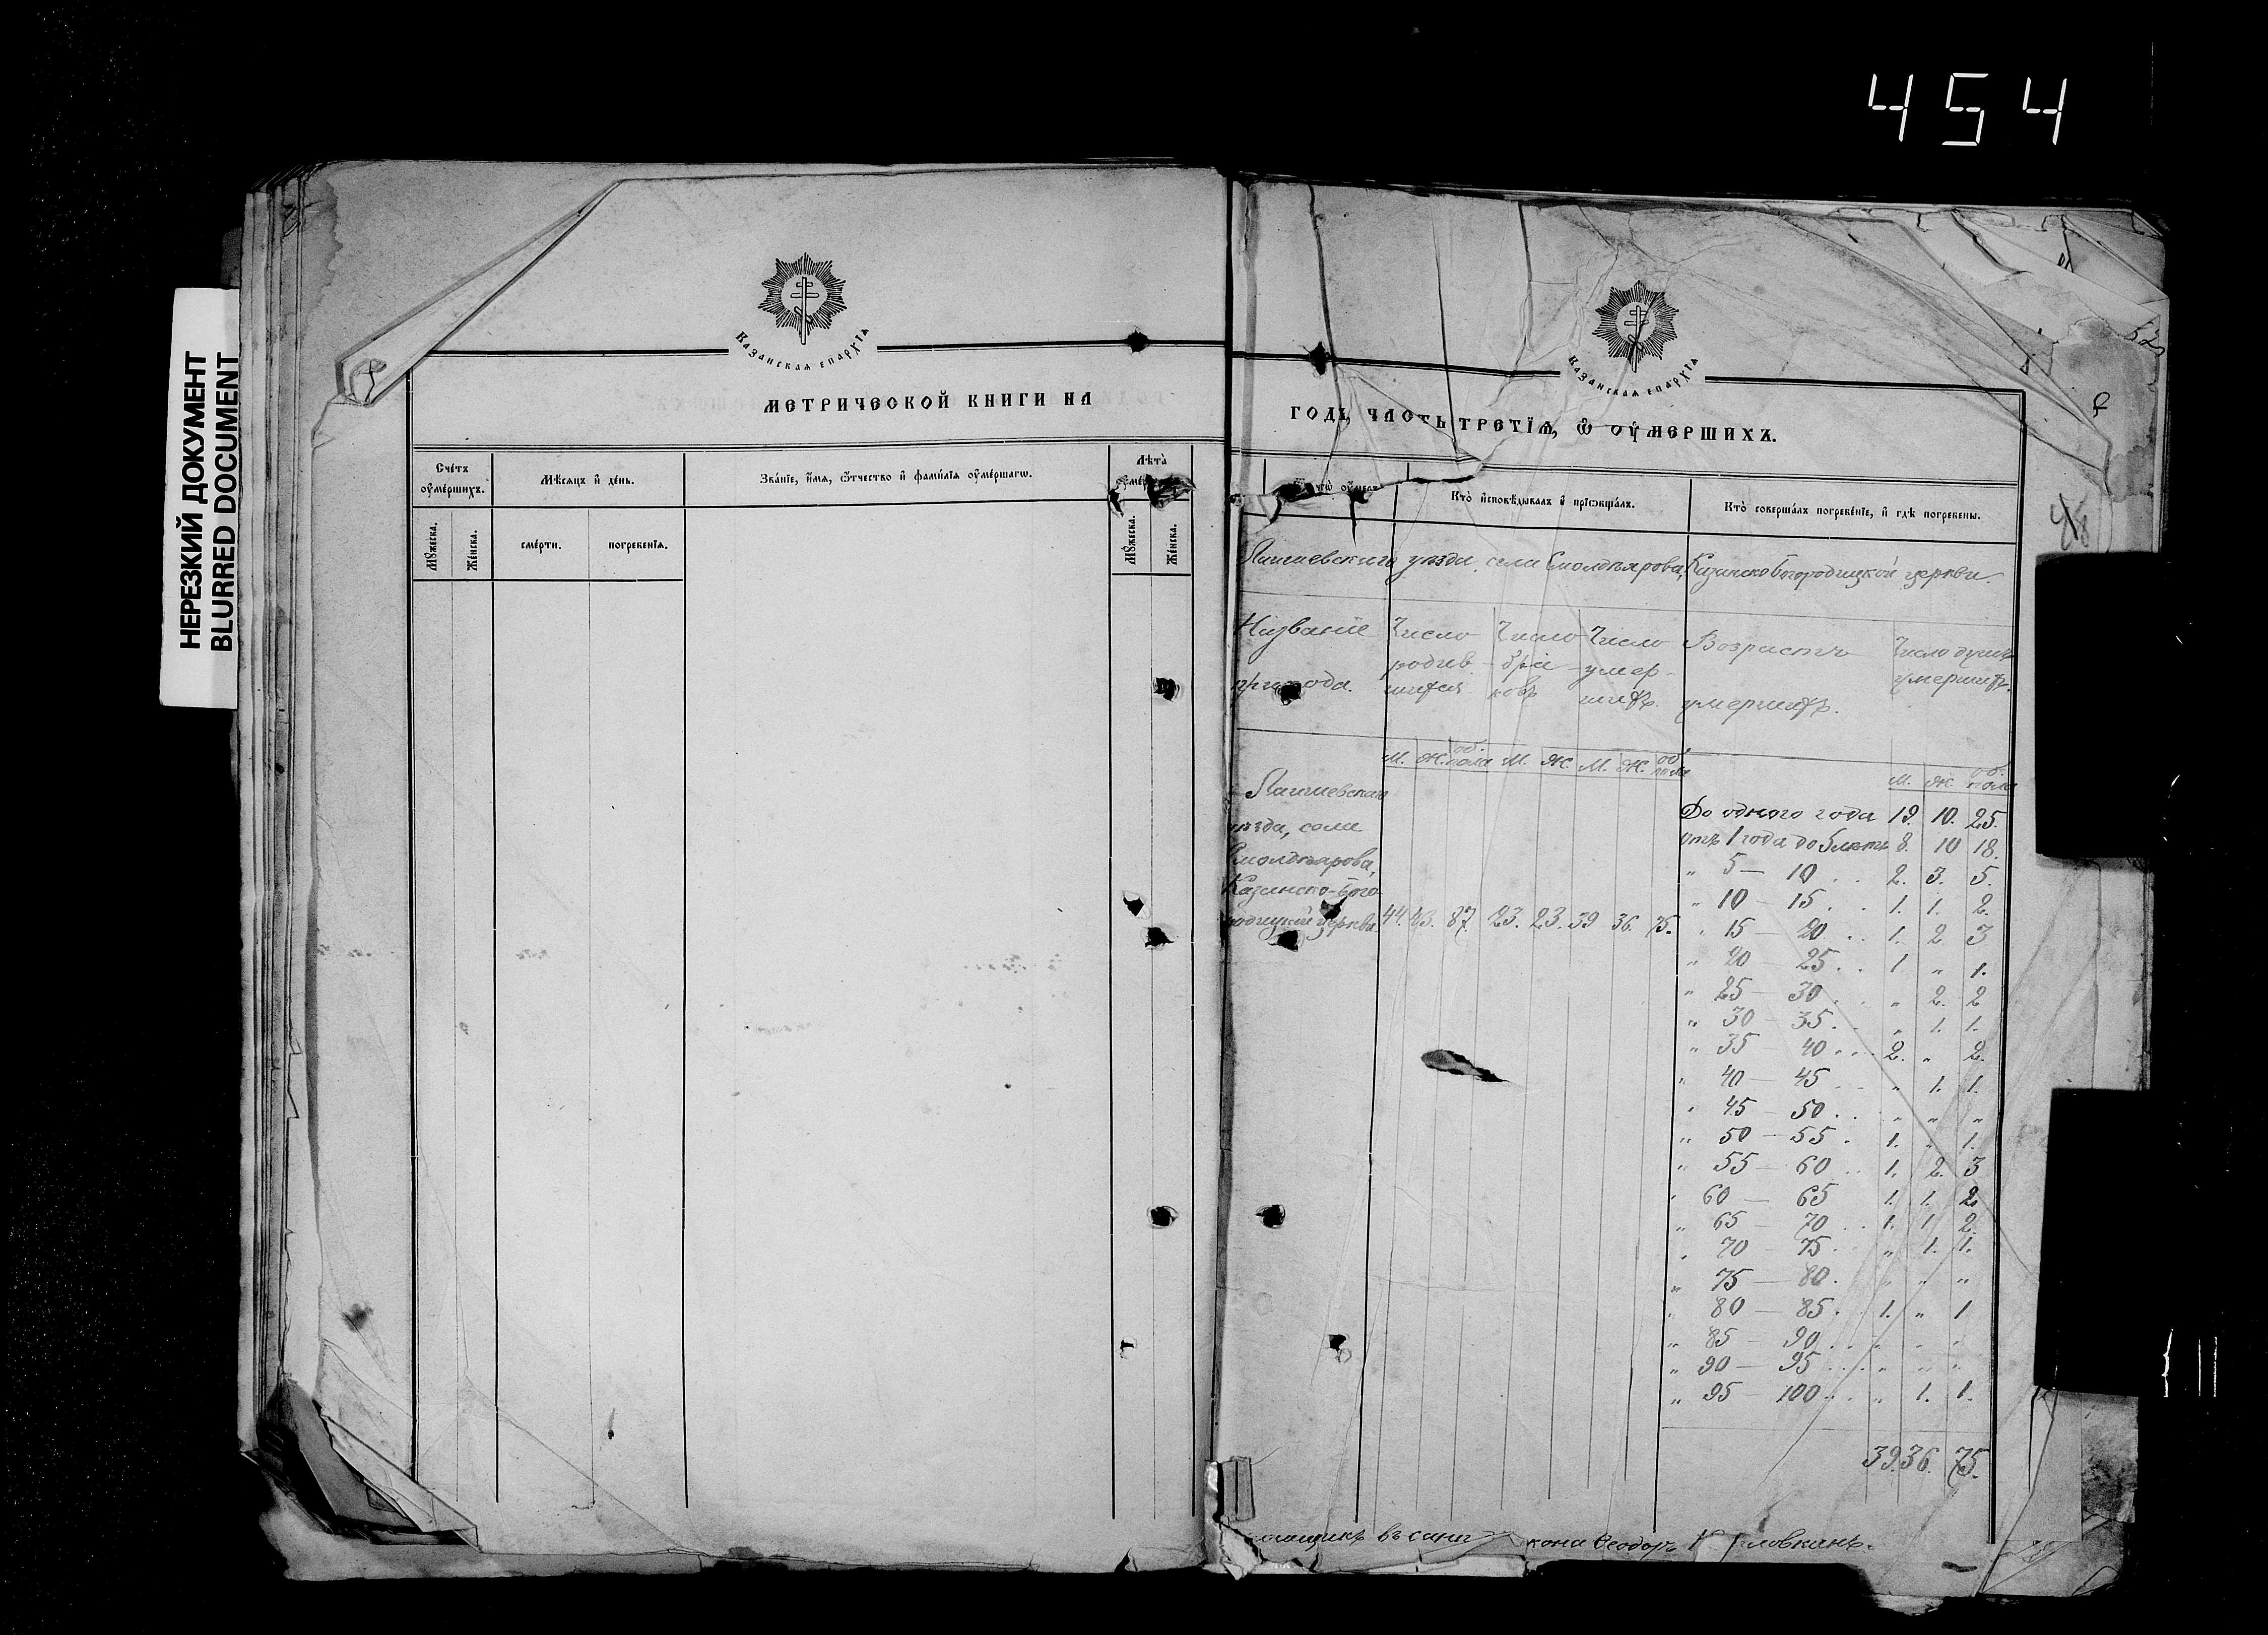 454
НЕРЕЗКИЙ ДОКУМЕНТ
BLURRED DOCUMENT
Казанская епархїѧ
МЕТРИЧЕСКОЙ КНИГИ НА
Счéтъ ᲂу҆мéршихъ.
Мѣ́сѧцъ и҆ дéнь.
Звáнїе, и҆́мѧ, ѻ҆́тчество и҆ фами́лїѧ ᲂу҆мéршагѡ.
Лѣ́та
Мꙋ́жеска.
Жéнска.
смéрти.
погребенїѧ.
Мꙋ́жеска.
Жéнска.
Казанская епархїѧ
ГОДЪ, ЧАСТЬ ТРЕТЇѦ, Ѡ҆ ОУ҆МЕРШИХЪ.
Кто̀ и҆сповѣ́дывалъ и҆ прїѡбща́лъ.
Кто̀ соверша́лъ погребéнїе, и҆ гдѣ̀ погребены.
Лаишевскаго уѣзда, села Смолдіярова, Казанско Богородицкой церкви.
Названіе прихода.
Число родившихся
Число браковъ
Число умершихъ.
Возрастъ умершихъ.
Число душъ умершихъ.
М. Ж. об. пола М. Ж. М. Ж. об. пола
М. Ж. об. пола
Лаишевскаго
уѣзда, села
Смолдіярова,
Казанско-Бого-
родицкой церкви. 44. 43. 87. 23. 23. 39 36. 75.
До одного года 19. 10. 25.
отъ 1 года до 5 лѣтъ 8. 10 18.
„ 5 — 10 . . 2. 3. 5.
„ 10 — 15 . . 1. 1. 2.
„ 15 — 20 . . 1. 2 3
„ 20 — 25 . . 1. „ 1.
„ 25 — 30 . . „ 2. 2
„ 30 — 35 . . „ 1. 1.
„ 35 — 40 . . . 2. „ 2.
„ 40 — 45 . . „ 1. 1.
„ 45 — 50 . . „ „ „
„ 50 — 55 . 1. „ 1.
„ 55 — 60 . . 1. 2. 3
„ 60 — 65 1. 1. 2
„ 65 — 70 . . 1. 1 2.
„ 70 — 75 . . „ 1. 1.
„ 75 — 80 . „ „ „
„ 80 — 85 . . 1. „ 1
„ 85 — 90 . . „ „ „
„ 90 — 95 . . . „ „ „
„ 95 — 100 . . „ 1. 1.
39. 36. 75.
въ санѣ кона Ѳеодоръ